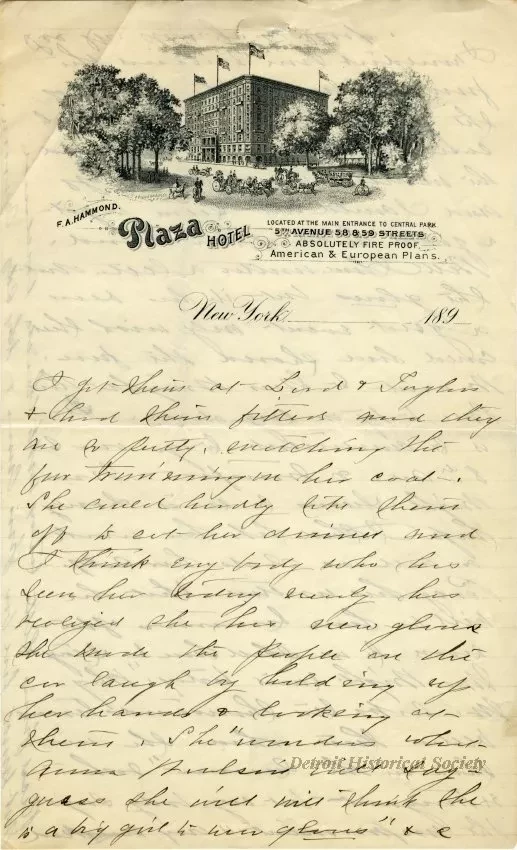 F. A. HAMMOND.
Plaza HOTEL
LOCATED AT THE MAIN ENTRANCE TO CENTRAL PARK
5TH AVENUE 58 & 59 STREETS
ABSOLUTELY FIRE PROOF.
American & European Plans.
New York 189
I got them at Lord & Taylors
& had them fitted and they
are so pretty, matching the
fur trimming on her coat.
She could hardly take them
off to eat her dinner and
I think any body who has
seen her today surely has
realized she has new gloves
She made the people on the
car laugh by holding up
her hands & looking at
them. She "wonders what
Anna will say
guess she will think she
is a big girl to wear gloves" & c
Detroit Historical Society